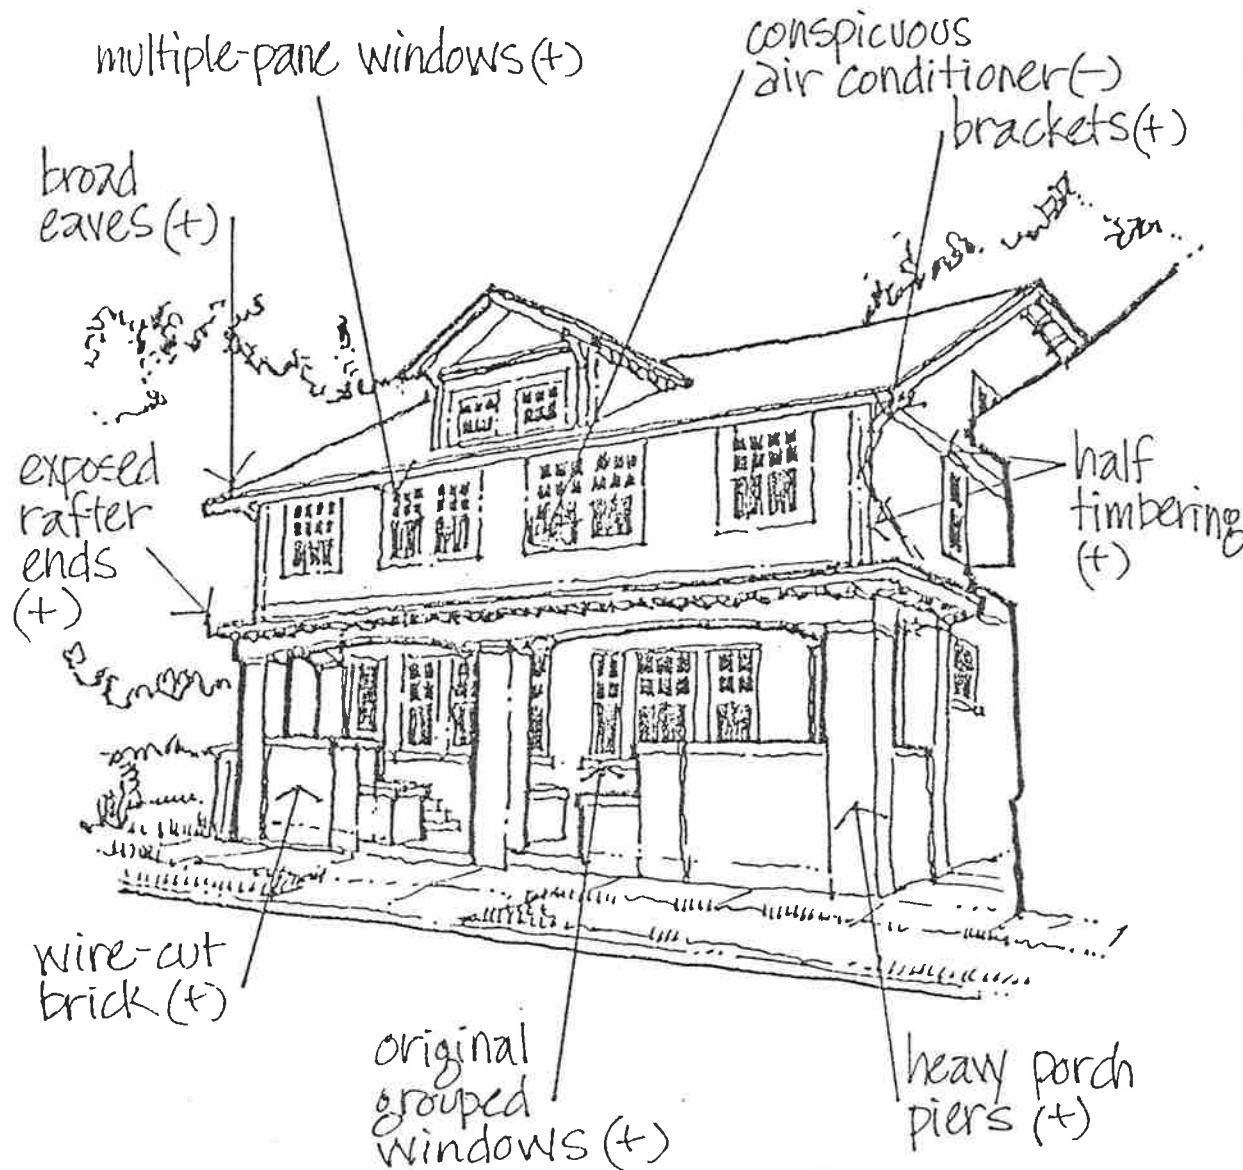 multiple-pane windows (+)
conspicuous
air conditioner (-)
brackets (+)
broad
eaves (+)
exposed
rafter
ends
(+)
half
timbering
(+)
wire-cut
brick (+)
original
grouped
windows (+)
heavy porch
piers (+)